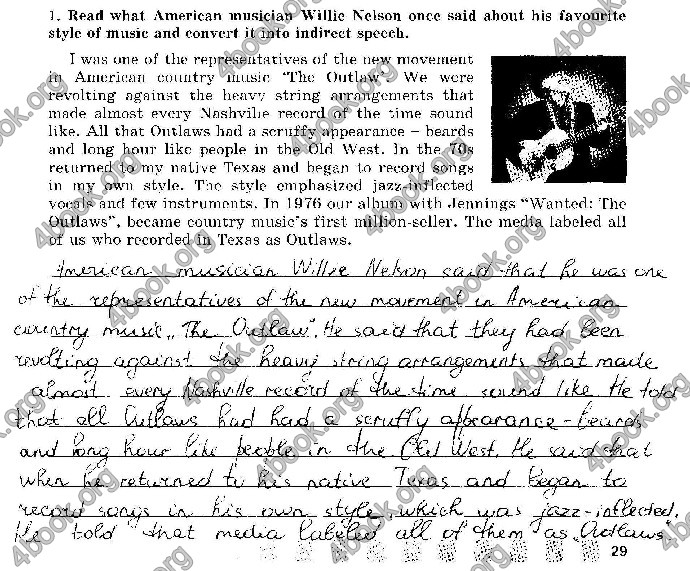 1. Read what American musician Willie Nelson once said about his favourite
style of music and convert it into indirect speech.
I was one of the representatives of the new movement
in American country music "The Outlaw". We were
revolting against the heavy string arrangements that
made almost every Nashville record of the time sound
like. All that Outlaws had a scruffy appearance – beards
and long hour like people in the Old West. In the 70s
returned to my native Texas and began to record songs
in my own style. The style emphasized jazz-inflected
vocals and few instruments. In 1976 our album with Jennings "Wanted: The
Outlaws", became country music's first million-seller. The media labeled all
of us who recorded in Texas as Outlaws.
American musician Willie Nelson said that he was one
of the representatives of the new movement in American
country music „The Outlaw". He said that they had been
revolting against the heavy string arrangements that made
almost every Nashville record of the time sound like. He told
that all Outlaws had had a scruffy appearance - beards
and long hour like people in the Old West. He said that
when he returned to his native Texas and began to
record songs in his own style, which was jazz-inflected.
He told that media labeled all of them as „Outlaws"
29
4book.org